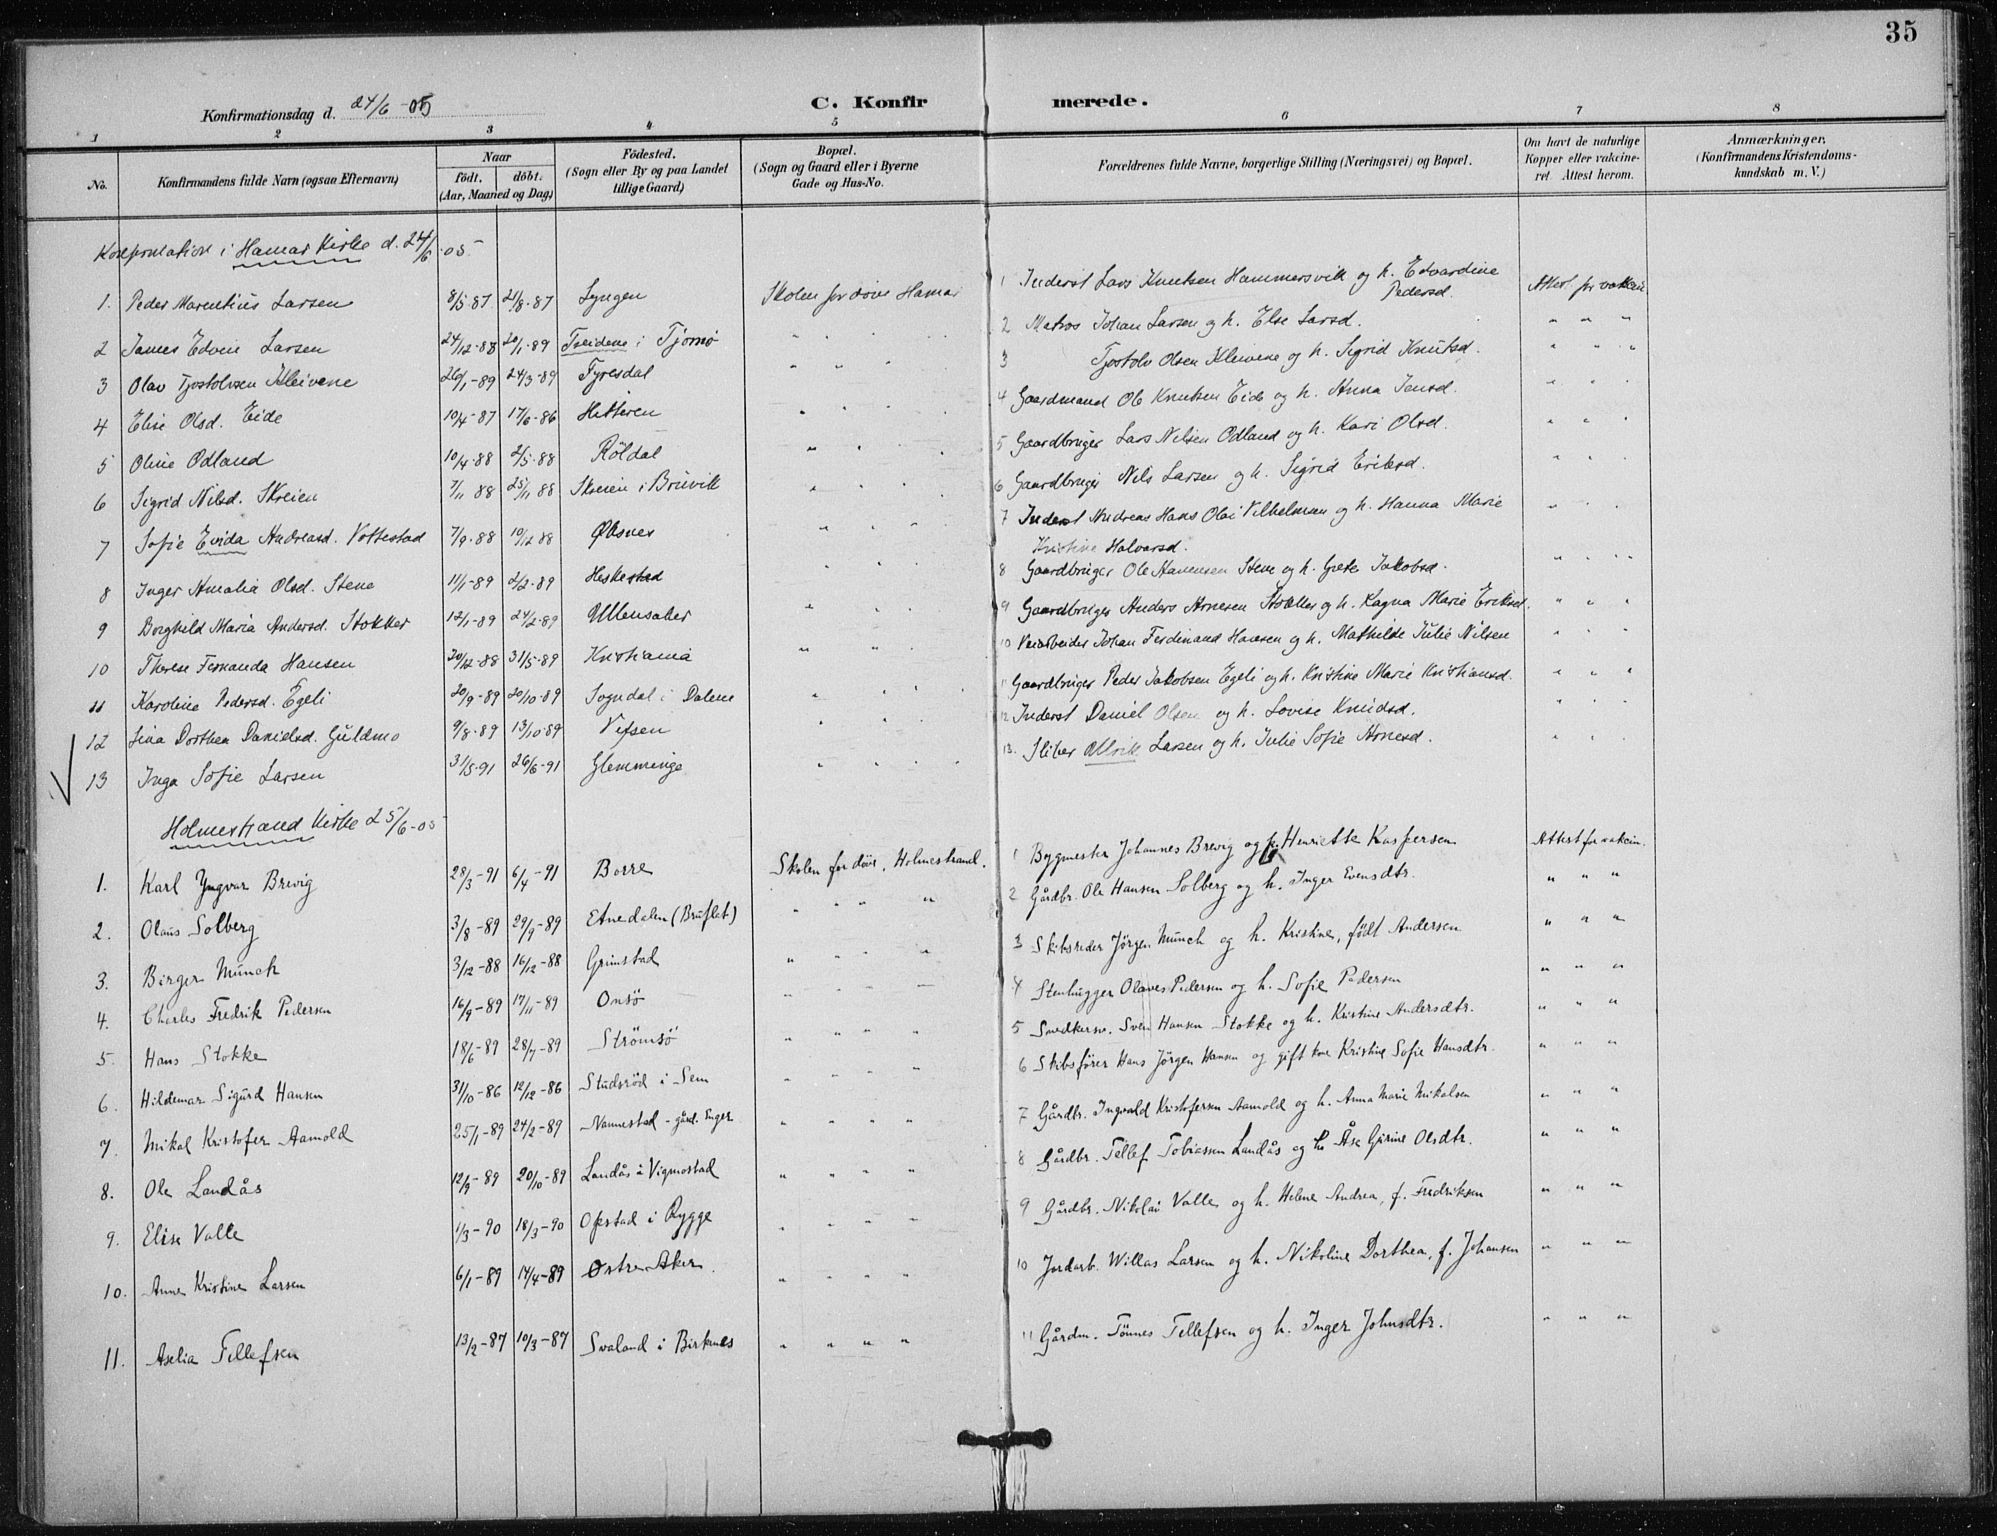 35
Konfirmationsdag d. 24/6-05
C. Konfirmerede.
1 2 3 4 5 6 7 8
No.
Konfirmandens fulde Navn (ogsaa Efternavn)
Naar
födt. döbt.
(Aar, Maaned og Dag)
Födested.
(Sogn eller By og paa Landet
tillige Gaard)
Bopæl.
(Sogn og Gaard eller i Byerne
Gade og Hus-No.
Forældrenes fulde Navne, borgerlige Stilling (Næringsvei) og Bopæl.
Om havt de naturlige
Kopper eller vakcine-
ret. Attest herom.
Anmærkninger.
(Konfirmandens Kristendoms-
kundskab m. V.)
i Hamar Kirke d. 24/6 05
1. Peder Marentius Larsen 8/5 87 21/8-87 Lyngen Skolen for döve Hamar 1 Inderst Lars Knutsen Hammersvik og h. Edvardine Pedersd. Attest for vakcin.
2 James Edvin Larsen 24/12-88 20/1-89 Treidene i Tjömö " " " 2 Matros Johan Larsen og h. Else Larsd. " " "
3 Olav Tjostolvsen Kleivene 26/1-89 24/3-89 Fyresdal " " 3 Tjostolv Olsen Kleivene og h. Sigrid Knutsd. " " "
4 Elise Olsd. Eide 10/4-87 17/6-86 Hitteren " " " " 4 Gaardmand Ole Knutsen Eide og h. Anna Jensd. " " "
5 Oline Odland 10/4-88 2/5-88 Röldal " " " 5 Gaardbruger Lars Nilsen Odland og h. Kari Olsd. " " "
6 Sigrid Nilsd. Skreien 7/11 88 25/11 88 Skreien i Bruvik " " " 6 Gaardbruger Nils Larsen og h. Sigrid Eriksd. " " "
7 Sofie Evida Andreasd. Vottestad 7/9-88 10/12 88 Öksnes " " " " 7 Inderst Andreas Hans Olai Vilhelmsen og h. Hanna Marie Kristine Halvorsd. " " "
8 Inger Amalia Olsd. Stene 11/1-89 2/2-89 Heskestad " " " 8 Gaardbruger Ole Hanensen Stene og h. Grete Jakobsd. " " " "
9 Borghild Maria Andersd. Stokker 12/1-89 24/2-89 Ullensaker " " " 9 Gaardbruger Anders Arnesen Stokker og h. Ragna Marie Eriksd. " " "
10 Therese Fernanda Hansen 20/12-88 31/5-89 Kristiania " " " 10 Veiarbeider Johan Ferdinand Hansen og h. Mathilde Julie Nilsen " " "
11 Karoline Pedersd. Egeli 20/9-89 20/10-89 Sogndal i Dalene " " " 11 Gaardbruger Peder Jakobsen Egeli og h. Kristine Marie Kristiansd. " " "
12 Lina Dorthea Danielsd. Guldmo 9/8-89 13/10-89 Vefsen " " " 12 Inderst Daniel Olsen og h. Lovise Knudsd. " " "
13 Inga Sofie Larsen 31/5-91 26/6-91 Glemminge " " " " 13. Sliber Ullrik Larsen og h. Julie Sofie Arnesd. " " "
Holmestrand Kirke 25/6-05
1. Karl Yngvar Brevig 28/3-91 6/4-91 Borre Skolen for döve, Holmestrand. 1 Bygmester Johannes Brevig og h. Henriette Kaspersen Attest for vakcin.
2. Olaus Solberg 3/8-89 29/9-89 Etnedalen (Bruflat) " " " " 2 Gårdbr. Ole Hansen Solberg og h. Inger Evensdtr. " " "
3. Birger Münch 3/12-88 16/12-88 Grimstad " " " " 3 Skibsreder Jörgen Münch og h. Kristine, födt Andersen " " "
4. Charles Fredrik Pedersen 16/9-89 17/11-89 Onsö " " " " 4 Stenhugger Olaves Pedersen og h. Sofie Pedersen " " "
5. Hans Stokke 18/6-89 28/7-89 Strömsö " " " " 5 Snedkersv. Sven Hansen Stokke og h. Kristine Andersdtr. " " "
6. Hildemar Sigurd Hansen 31/10-86 12/12-86 Studsröd i Sem " " " " 6 Skibsförer Hans Jörgen Hansen og gift kone Kristine Sofie Hansdtr. " " "
7. Mikal Kristofer Aamold 25/1-89 24/2-89 Nannestad - gård. Enger " " " " 7 Gårdbr. Ingvald Kristofersen Aamold og h. Anna Marie Mikalsen " " "
8. Ole Landås 12/9-89 20/10-89 Landås i Vigmostad " " " " 8 Gårdbr. Tellef Tobiassen Landås og h. Åse Gurine Olsdtr. " " "
9. Elise Valle 1/3-90 18/3-90 Opstad i Rygge " " " " 9 Gårdbr. Nikolai Valle og h. Helene Andrea, f. Fredriksen " " "
10. Anne Kristine Larsen 6/1-89 14/4-89 Östre Aker. " " " " 10 Jordarb. Willas Larsen og h. Nikoline Dorthea, f. Johansen " " "
11. Aselia Tellefsen 13/2-87 10/3-87 Svaland i Birkenes " " " " 11 Gårdm. Tönnes Tellefsen og h. Inger Johnsdtr. " " "